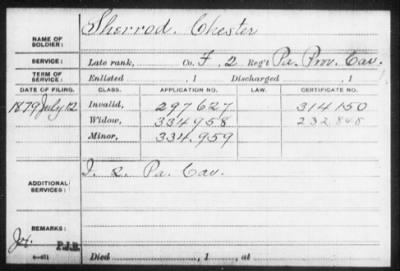 NAME OF SOLDIER: Sherrod, Chester
SERVICE: Late rank, Co. F, 2 Reg't Pa. Prov. Cav.
TERM OF SERVICE: Enlisted , 1 Discharged , 1
DATE OF FILING. CLASS. APPLICATION NO. LAW. CERTIFICATE NO.
1879 July 12 Invalid, 297627 314150
Widow, 334958 232848
Minor, 334.959
ADDITIONAL SERVICES: I. 2. Pa. Cav.
REMARKS:
P.J.R.
6-451 Died , 1 , at